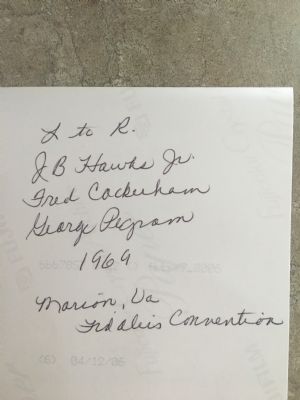 L to R.
J B Hawks Jr.
Fred Cockerham
George Pegram
1969
Marion, Va
Fiddlers Convention
(6) 04/12/06